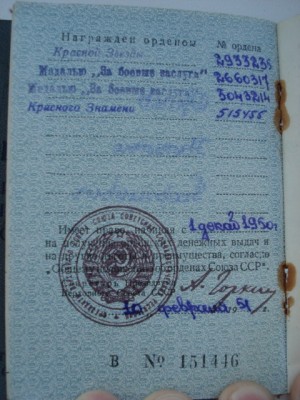 Награжден орденом № ордена
Красной Звезды 2933235
Медалью „За боевые заслуги" 2660317
Медалью „За боевые заслуги" 3043214
Красного Знамени 515455
Имеет право, начиная с 1 декаб 1950 г.
денежных выдач и
имущества, согласно
орденах Союза ССР".
А. Горкин
10 февраля 51
В № 151446